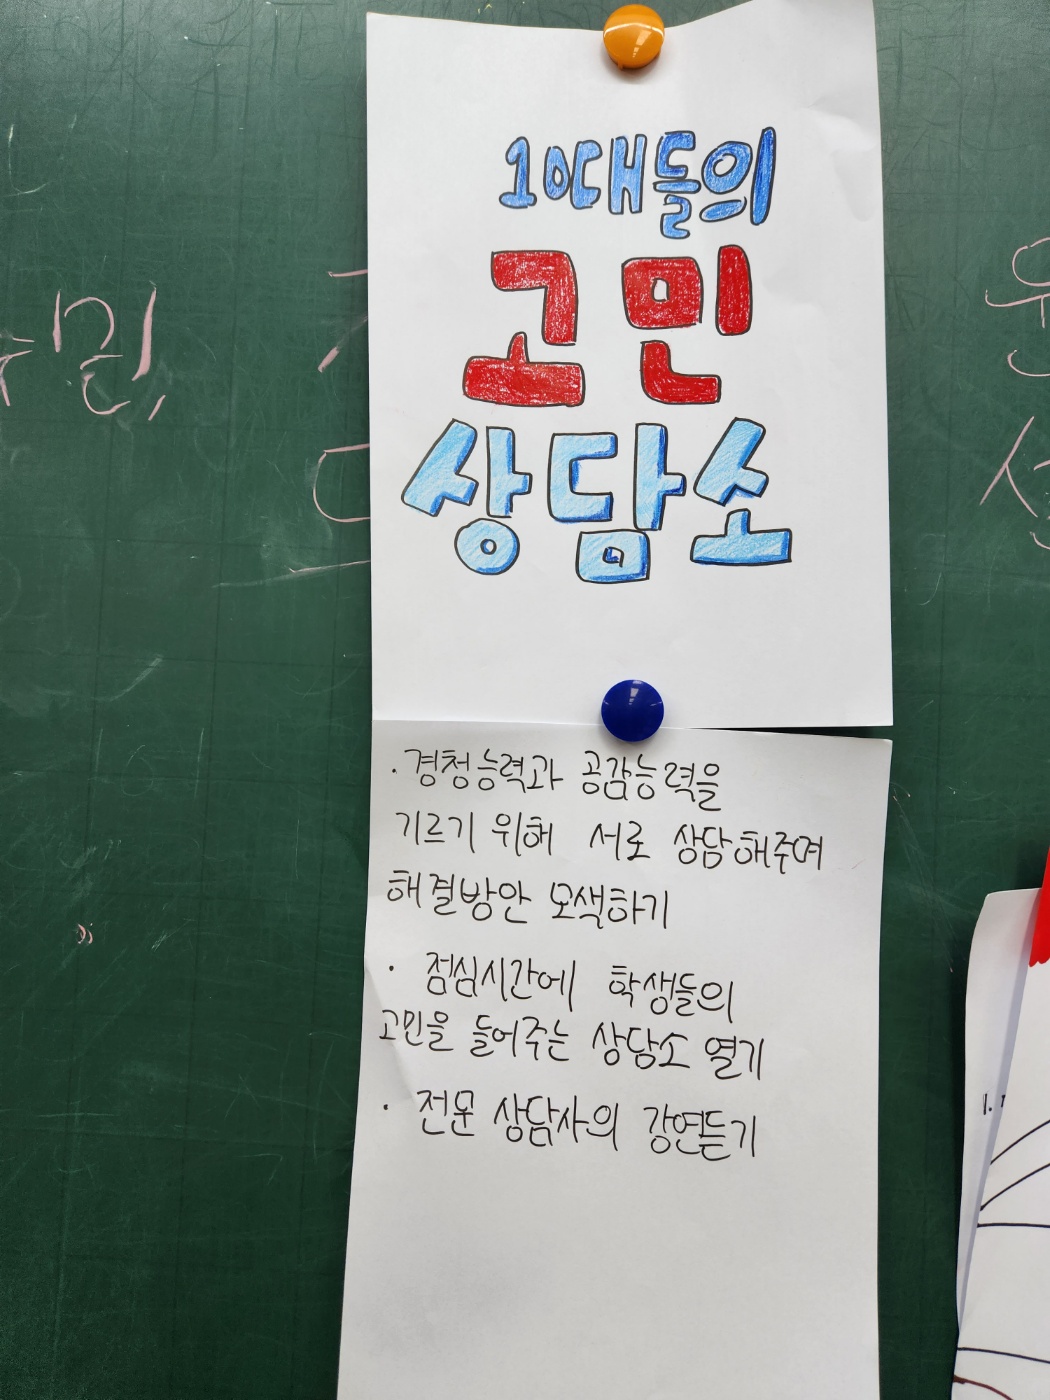 10대들의
고민
상담소
· 경청능력과 공감능력을
기르기 위해 서로 상담해주며
해결방안 모색하기
· 점심시간에 학생들의
고민을 들어주는 상담소 열기
· 전문 상담사의 강연듣기